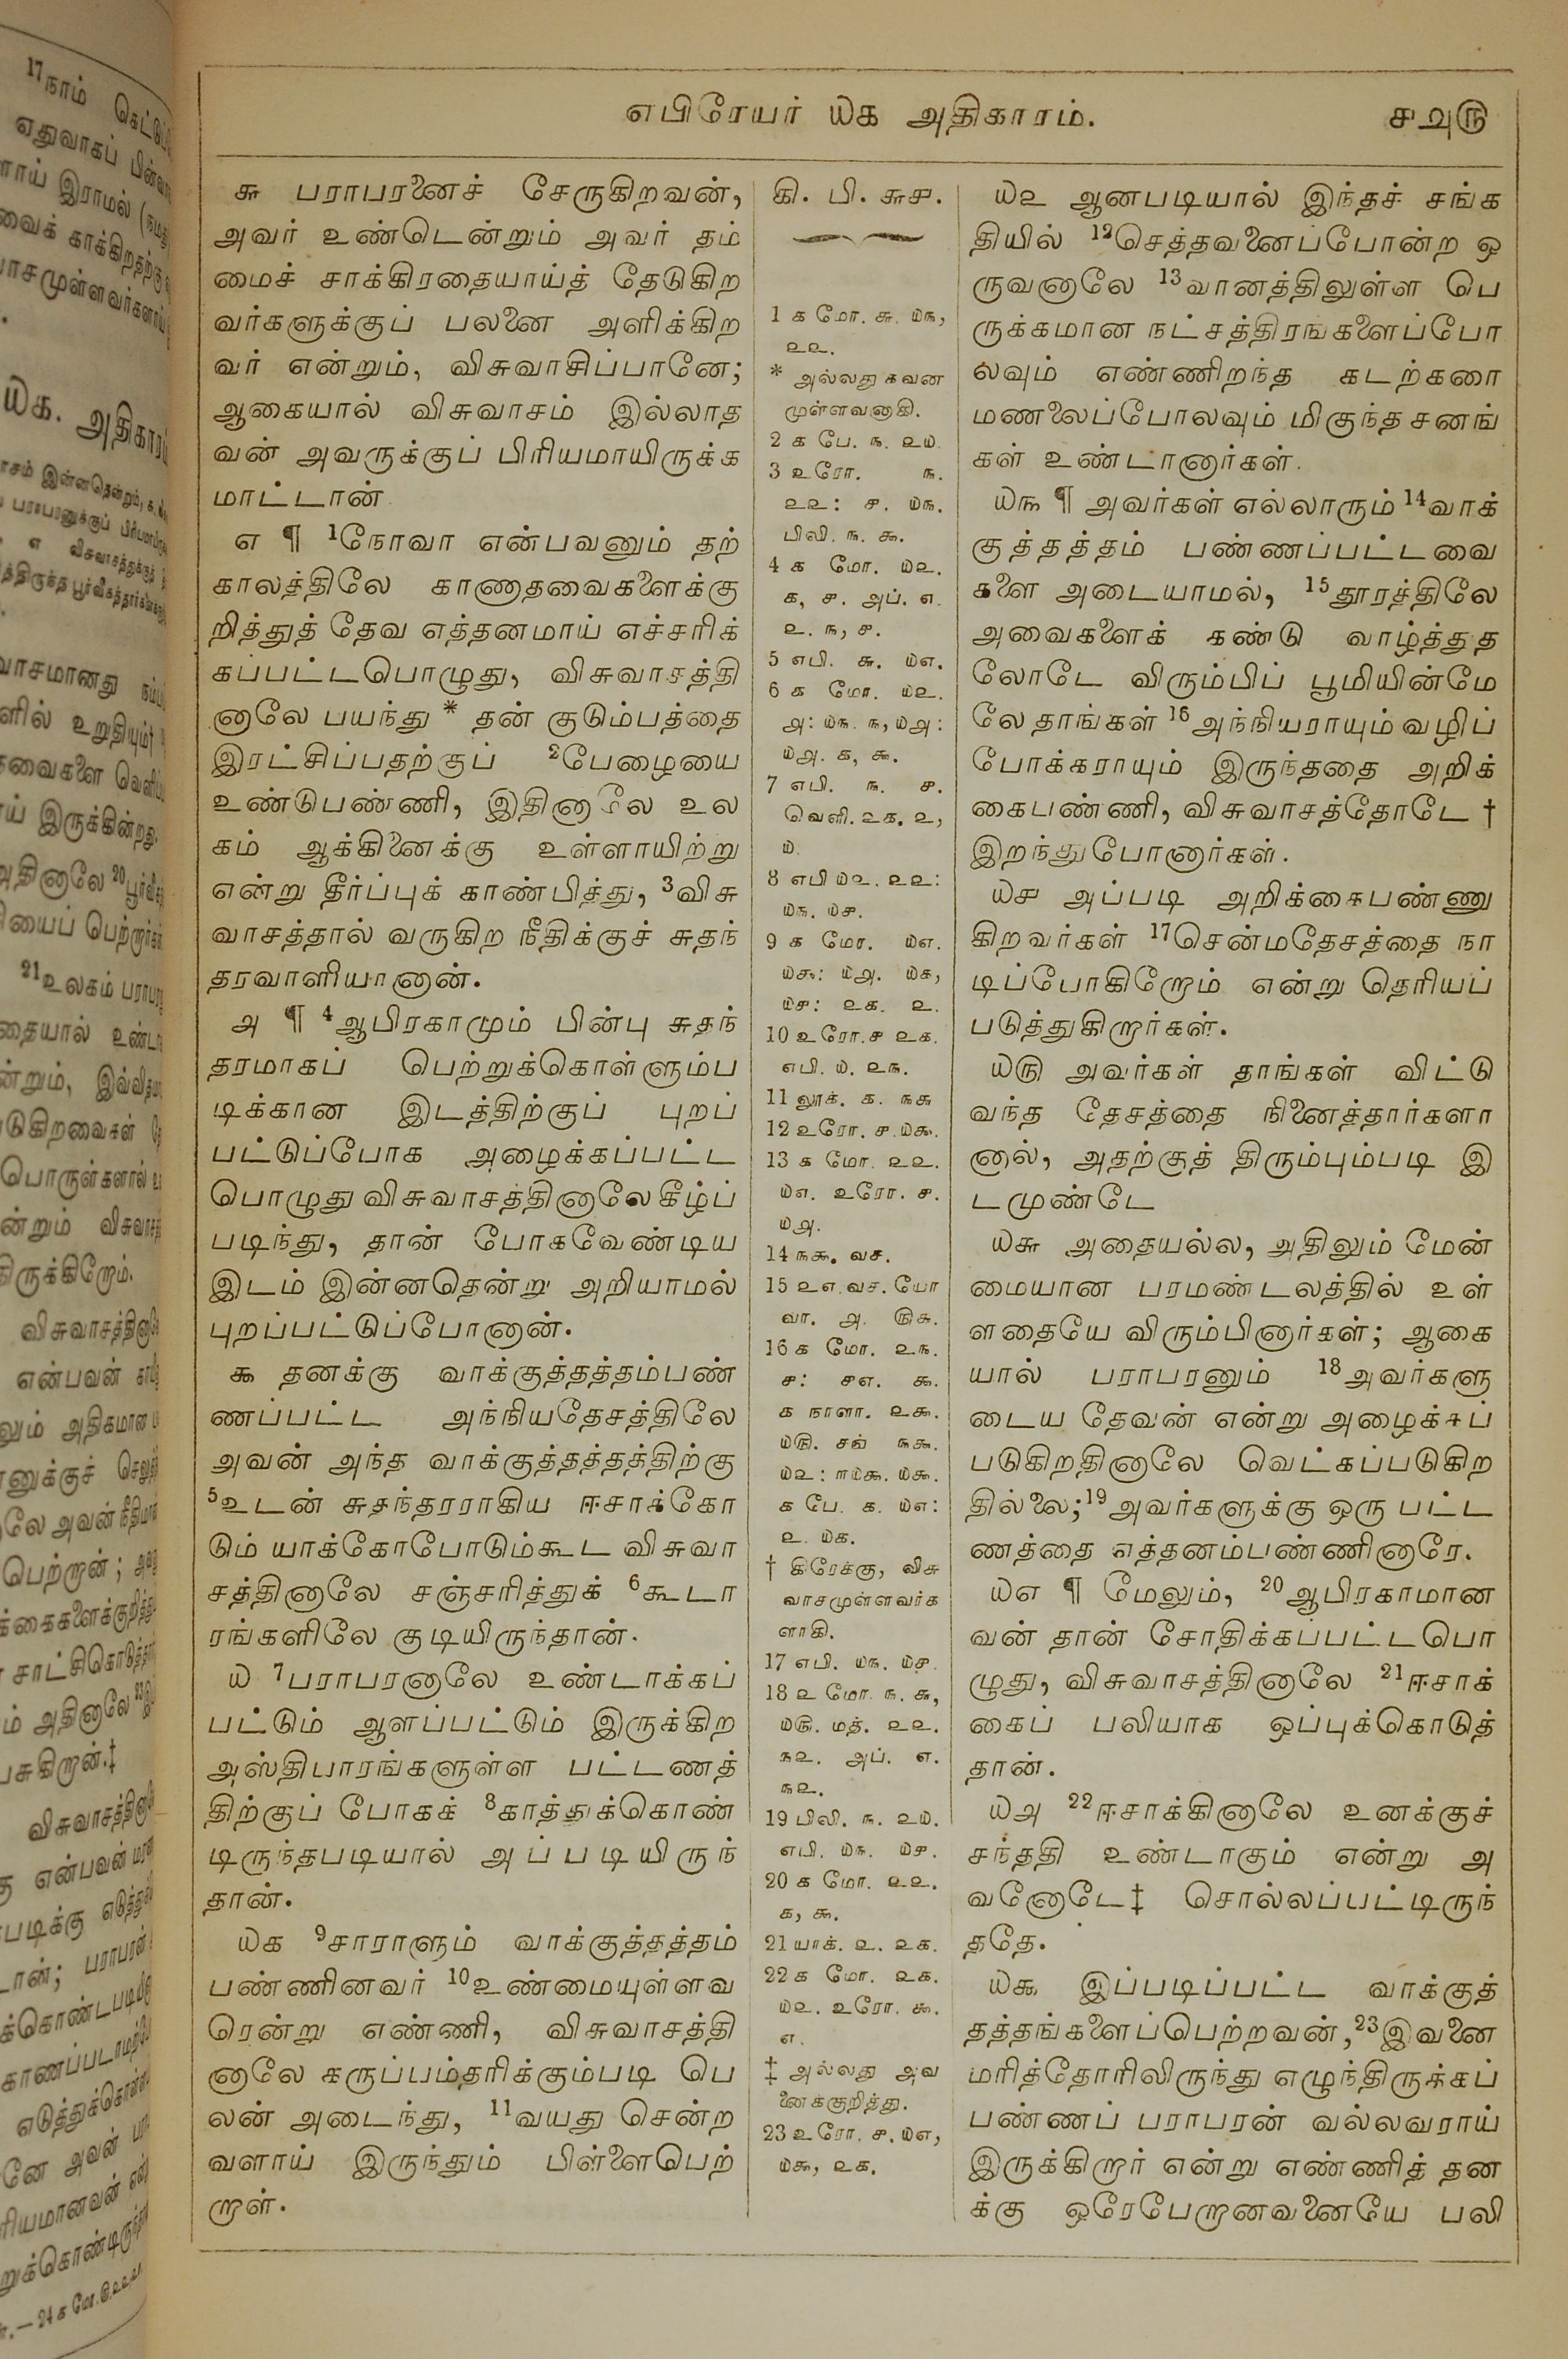 எபிரேயர் ௰௧ அதிகாரம்.
௪௮௫
௬ பராபரனைச் சேருகிறவன்,
அவர் உண்டென்றும் அவர் தம்
மைச் சாக்கிரதையாய்த் தேடுகிற
வர்களுக்குப் பலனை அளிக்கிற
வர் என்றும், விசுவாசிப்பானே;
ஆகையால் விசுவாசம் இல்லாத
வன் அவருக்குப் பிரியமாயிருக்க
மாட்டான்
௭ ¶ 1நோவா என்பவனும் தற்
காலத்திலே காணாதவைகளைக்கு
றித்துத் தேவ எத்தனமாய் எச்சரிக்
கப்பட்டபொழுது, விசுவாசத்தி
னாலே பயந்து * தன் குடும்பத்தை
இரட்சிப்பதற்குப் 2பேழையை
உண்டுபண்ணி, இதினாலே உல
கம் ஆக்கினைக்கு உள்ளாயிற்று
என்று தீர்ப்புக் காண்பித்து, 3விசு
வாசத்தால் வருகிற நீதிக்குச் சுதந்
தரவாளியானான்.
௮ ¶ 4ஆபிரகாமும் பின்பு சுதந்
தரமாகப் பெற்றுக்கொள்ளும்ப
டிக்கான இடத்திற்குப் புறப்
பட்டுப்போக அழைக்கப்பட்ட
பொழுது விசுவாசத்தினாலே கீழ்ப்
படிந்து, தான் போகவேண்டிய
இடம் இன்னதென்று அறியாமல்
புறப்பட்டுப்போனான்.
௯ தனக்கு வாக்குத்தத்தம்பண்
ணப்பட்ட அந்நியதேசத்திலே
அவன் அந்த வாக்குத்தத்தத்திற்கு
5உடன் சுதந்தரராகிய ஈசாக்கோ
டும் யாக்கோபோடும்கூட விசுவா
சத்தினாலே சஞ்சரித்துக் 6கூடா
ரங்களிலே குடியிருந்தான்.
௰ 7பராபரனாலே உண்டாக்கப்
பட்டும் ஆளப்பட்டும் இருக்கிற
அஸ்திபாரங்களுள்ள பட்டணத்
திற்குப் போகக் 8காத்துக்கொண்
டிருந்தபடியால் அப்படியிருந்
தான்.
௰௧ 9சாராளும் வாக்குத்தத்தம்
பண்ணினவர் 10உண்மையுள்ளவ
ரென்று எண்ணி, விசுவாசத்தி
னாலே கருப்பம்தரிக்கும்படி பெ
லன் அடைந்து, 11வயது சென்ற
வளாய் இருந்தும் பிள்ளைபெற்
றாள்.
கி. பி. ௬௪.
1 ௧ மோ. ௬. ௰௩,
௨௨.
* அல்லது கவன
முள்ளவனாகி.
2 ௧ பே. ௩. ௨௰.
3 உரோ. ௩.
௨௨: ௪. ௰௩.
பிலி. ௩. ௯.
4 ௧ மோ. ௰௨.
௧, ௪. அப். ௭.
௨. ௩, ௪.
5 எபி. ௬. ௰௭.
6 ௧ மோ. ௰௨.
௮: ௰௩. ௩, ௰௮:
௰௮. ௧, ௯.
7 எபி. ௩. ௪.
வெளி. ௨௧. ௨,
௰.
8 எபி ௰௨. ௨௨:
௰௩. ௰௪.
9 ௧ மோ. ௰௭.
௰௯: ௰௮. ௰௧,
௰௪: ௨௧. ௨.
10 உரோ. ௪ ௨௧.
எபி. ௰. ௨௩.
11 லூக். ௧. ௩௬
12 உரோ. ௪. ௰௯.
13 ௧ மோ. ௨௨.
௰௭. உரோ. ௪.
௰௮.
14 ௩௯. வச.
15 ௨௭. வச. யோ
வா. ௮. ௫௬.
16 ௧ மோ. ௨௩.
௪: ௪௭. ௯.
௧ நாளா. ௨௯.
௰௫. சங் ௩௯.
௰௨: ௱௰௯. ௰௯.
௧ பே. ௧. ௰௭:
௨. ௰௧.
† கிரேக்கு, விசு
வாசமுள்ளவர்க
ளாகி.
17 எபி. ௰௩. ௰௪.
18 ௨ மோ. ௩. ௬,
௰௫. மத். ௨௨.
௩௨. அப். ௭.
௩௨.
19 பிலி. ௩. ௨௰.
எபி. ௰௩. ௰௪.
20 ௧ மோ. ௨௨.
௧, ௯.
21 யாக். ௨. ௨௧.
22 ௧ மோ. ௨௧.
௰௨. உரோ. ௯.
௭.
‡ அல்லது அவ
னைக்குறித்து.
23 உரோ. ௪. ௰௭,
௰௯, ௨௧.
௰௨ ஆனபடியால் இந்தச் சங்க
தியில் 12செத்தவனைப்போன்ற ஒ
ருவனாலே 13வானத்திலுள்ள பெ
ருக்கமான நட்சத்திரங்களைப்போ
லவும் எண்ணிறந்த கடற்கரை
மணலைப்போலவும் மிகுந்த சனங்
கள் உண்டானார்கள்.
௰௩ ¶ அவர்கள் எல்லாரும் 14வாக்
குத்தத்தம் பண்ணப்பட்டவை
களை அடையாமல், 15தூரத்திலே
அவைகளைக் கண்டு வாழ்த்துத
லோடே விரும்பிப் பூமியின்மே
லே தாங்கள் 16அந்நியராயும் வழிப்
போக்கராயும் இருந்ததை அறிக்
கைபண்ணி, விசுவாசத்தோடே †
இறந்துபோனார்கள்.
௰௪ அப்படி அறிக்கைபண்ணு
கிறவர்கள் 17சென்மதேசத்தை நா
டிப்போகிறோம் என்று தெரியப்
படுத்துகிறார்கள்.
௰௫ அவர்கள் தாங்கள் விட்டு
வந்த தேசத்தை நினைத்தார்களா
னால், அதற்குத் திரும்பும்படி இ
டமுண்டே
௰௬ அதையல்ல, அதிலும் மேன்
மையான பரமண்டலத்தில் உள்
ளதையே விரும்பினார்கள்; ஆகை
யால் பராபரனும் 18அவர்களு
டைய தேவன் என்று அழைக்கப்
படுகிறதினாலே வெட்கப்படுகிற
தில்லை; 19அவர்களுக்கு ஒரு பட்ட
ணத்தை எத்தனம்பண்ணினாரே.
௰௭ ¶ மேலும், 20ஆபிரகாமான
வன் தான் சோதிக்கப்பட்டபொ
ழுது, விசுவாசத்தினாலே 21ஈசாக்
கைப் பலியாக ஒப்புக்கொடுத்
தான்.
௰௮ 22ஈசாக்கினாலே உனக்குச்
சந்ததி உண்டாகும் என்று அ
வனோடே‡ சொல்லப்பட்டிருந்
ததே.
௰௯ இப்படிப்பட்ட வாக்குத்
தத்தங்களைப்பெற்றவன், 23இவனை
மரித்தோரிலிருந்து எழுந்திருக்கப்
பண்ணப் பராபரன் வல்லவராய்
இருக்கிறார் என்று எண்ணித் தன
க்கு ஒரேபேறானவனையே பலி